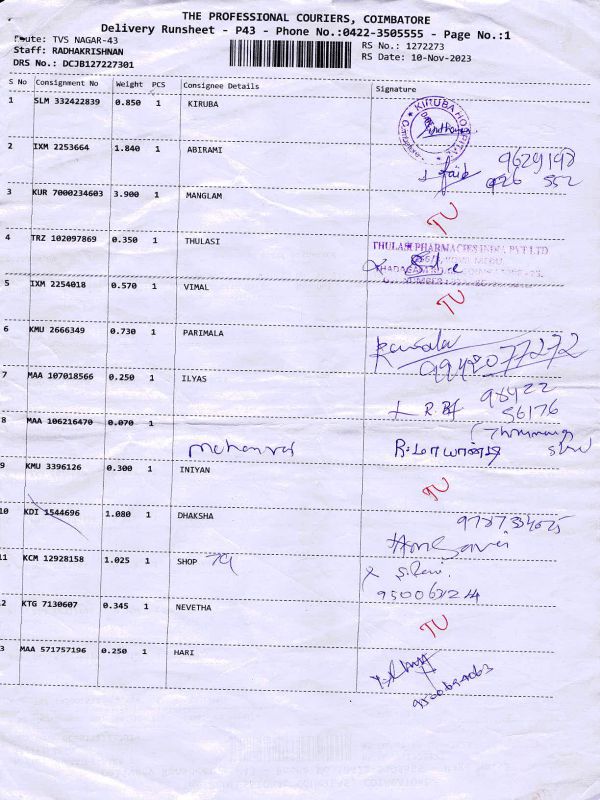 THE PROFESSIONAL COURIERS, COIMBATORE
Delivery Runsheet - P43 - Phone No.:0422-3505555 - Page No.:1
Route: TVS NAGAR-43
RS No.: 1272273
Staff: RADHAKRISHNAN
RS Date: 10-Nov-2023
DRS No.: DCJB127227301
S No Consignment No Weight PCS Consignee Details Signature
1 SLM 332422839 0.850 1 KIRUBA
2 IXM 2253664 1.840 1 ABIRAMI
3 KUR 7000234603 3.900 1 MANGLAM TU
4 TRZ 102097869 0.350 1 THULASI
THULASI PHARMACIES INDIA PVT LTD
5 IXM 2254018 0.570 1 VIMAL TU
6 KMU 2666349 0.730 1 PARIMALA
9942077272
7 MAA 107018566 0.250 1 ILYAS
98422
56176
8 MAA 106216470 0.070 1
9 KMU 3396126 0.300 1 INIYAN TU
10 KDI 1544696 1.080 1 DHAKSHA
11 KCM 12928158 1.025 1 SHOP
12 KTG 7130607 0.345 1 NEVETHA TU
13 MAA 571757196 0.250 1 HARI